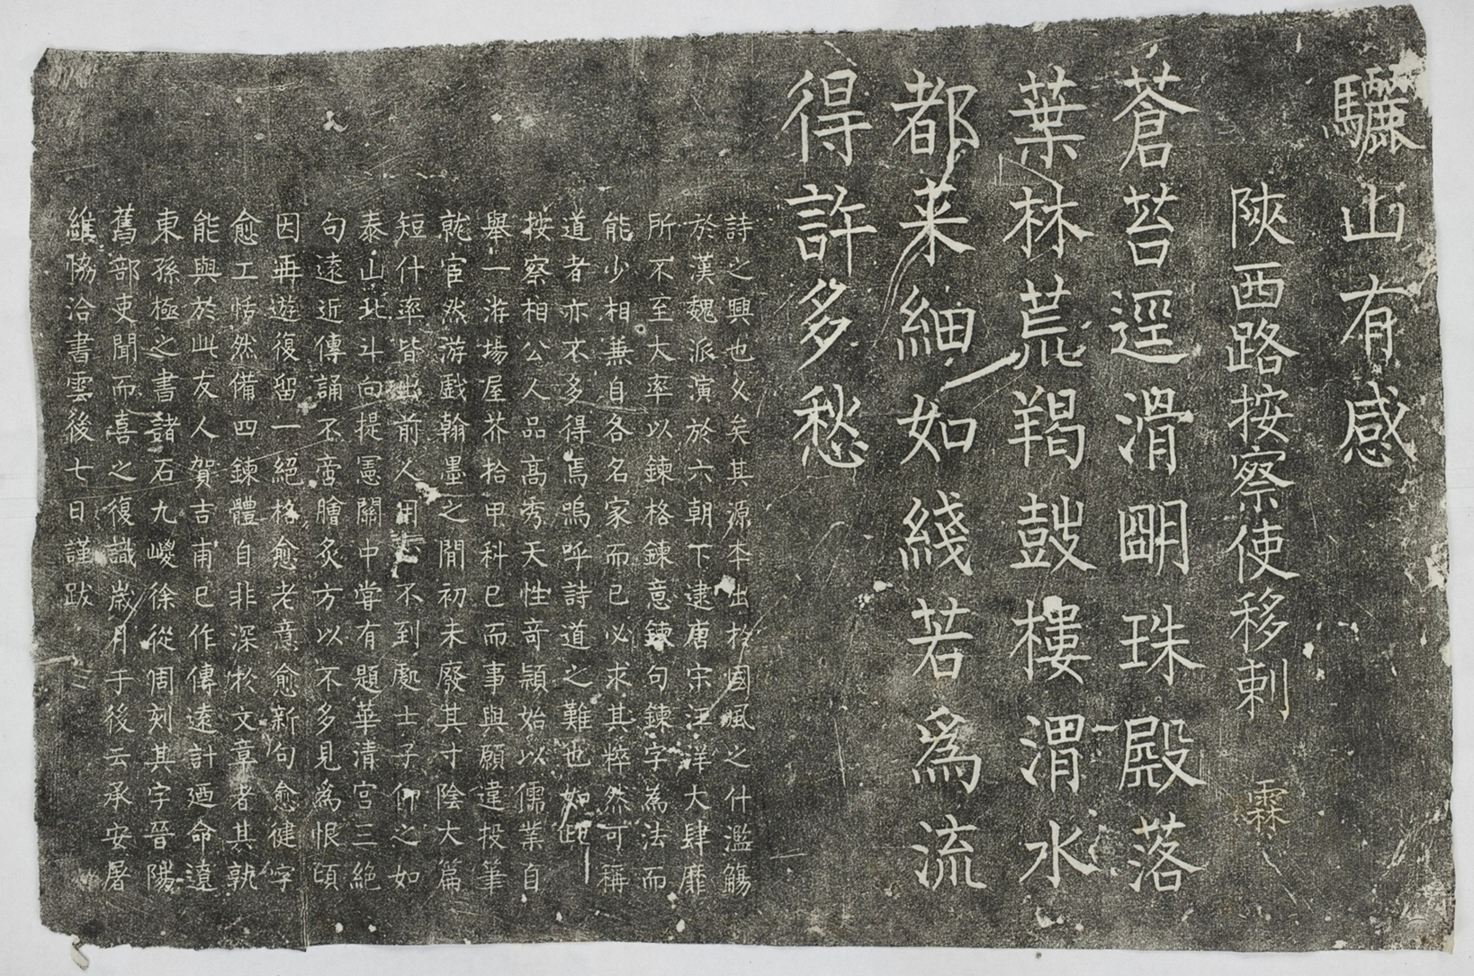 驪山有感
陝西路按察使移剌　霖
蒼苔逕滑明珠殿落
葉林荒羯鼓樓渭水
都来細如綫若爲流
得許多愁
詩之興也久矣其源本出於國風之什濫觴
於漢魏派演於六朝下逮唐宋汪洋大肆靡
所不至大率以鍊格鍊意鍊句鍊字為法而
能少相兼自各名家而已必求其粹然可稱
道者亦不多得焉嗚呼詩道之難也如此
按察相公人品高秀天性竒頴始以儒業自
舉一游場屋芥拾甲科已而事與願違投筆
就宦然游戲翰墨之間初未廢其寸陰大篇
短什率皆出前人用不到處士子仰之如
泰山北斗向提憲關中甞有題華清宮三絕
句遠近傳誦丕啻膾炙方以不多見為恨頃
因再遊復留一絕格愈老意愈新句愈健字
愈工恬然備四鍊體自非深於文章者其孰
能與於此友人賀吉甫已作傳遠計廼命遠
東孫極之書諸石九嵕徐從周刻其字晉陽
舊部吏聞而喜之復識歲月于後云承安屠
維恊洽書雲後七日謹跋